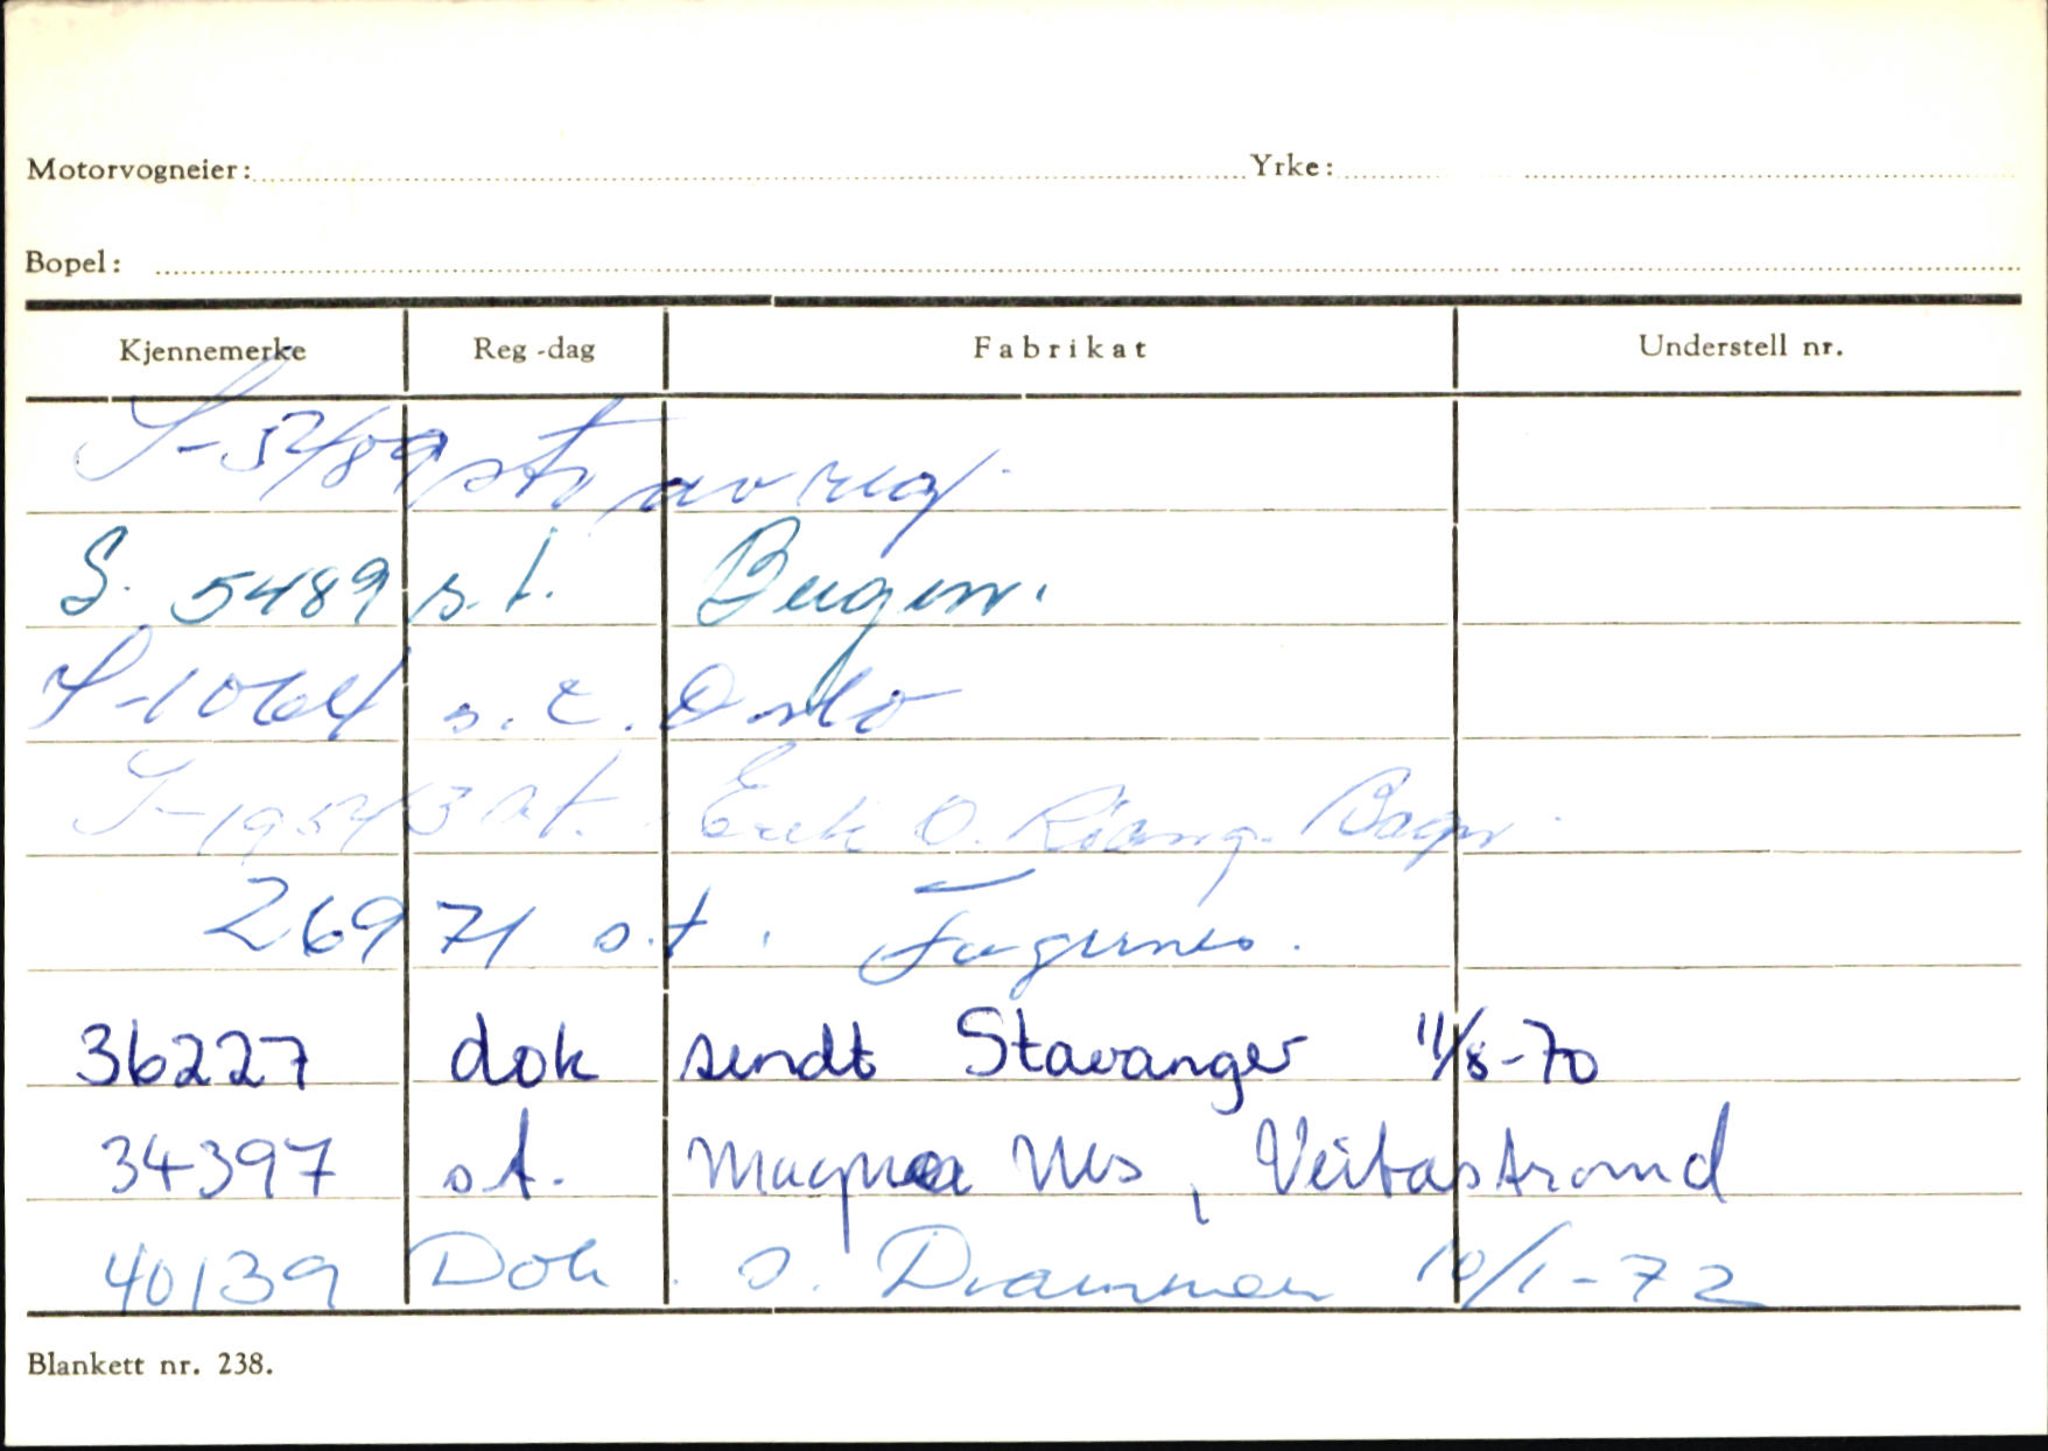 Motorvogneier: Yrke:
Bopel:
Kjennemerke Reg-dag Fabrikat Understell nr.
S-5489 av reg.
S. 5489 s.t. Bergen.
S-1064 s.t. Oslo
S-19543 s.t. Erik O. Bagn
26971 s.t. Fagernes.
36227 dok sendt Stavanger 11/8-70
34397 s.t. Magna Nes, Veitastrond
40139 Dok. s. Drammen 10/1-72
Blankett nr. 238.